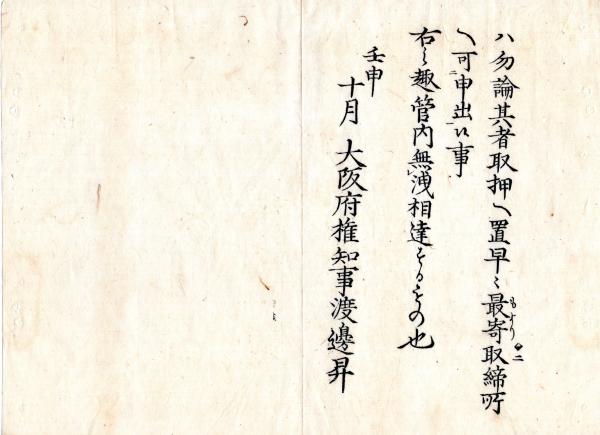 ハ勿論其者取押へ置早々最寄取締所
もより
二
へ可申出候事
右之趣管内無洩相達するもの也
壬申
十月 大阪府権知事渡邊昇